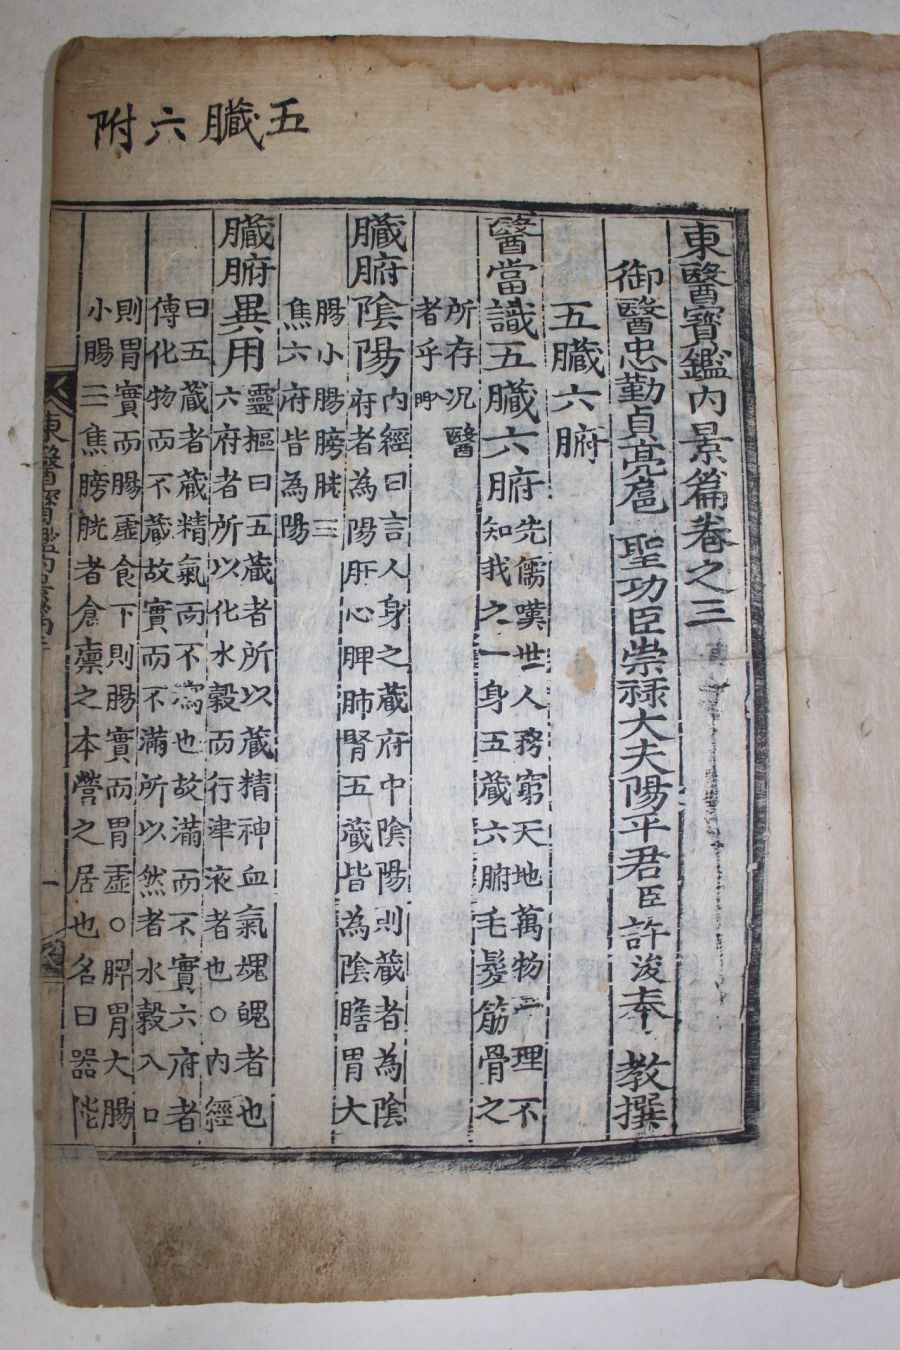 五臟六附
東醫寶鑑內景篇卷之三
御醫忠勤貞亮扈 聖功臣崇祿大夫陽平君臣許浚奉 教撰
五臟六腑
醫當識五臟六腑
先儒嘆世人務窮天地萬物之理不
知我之一身五藏六腑毛髮筋骨之
所存況醫
者乎
臟腑陰陽
內經曰言人身之藏府中陰陽則藏者為陰
府者為陽肝心脾肺腎五藏皆為陰膽胃大
腸小腸膀胱三
焦六府皆為陽
臟腑異用
靈樞曰五藏者所以藏精神血氣魂魄者也
六府者所以化水穀而行津液者也○內經
曰五蔵者蔵精氣而不瀉也故滿而不實六府者
傳化物而不蔵故實而不滿所以然者水穀入口
則胃實而腸虛食下則腸實而胃虛○脾胃大腸
小腸三焦膀胱者倉廩之本營之居也名曰器能
東醫寶鑑內景篇三
一